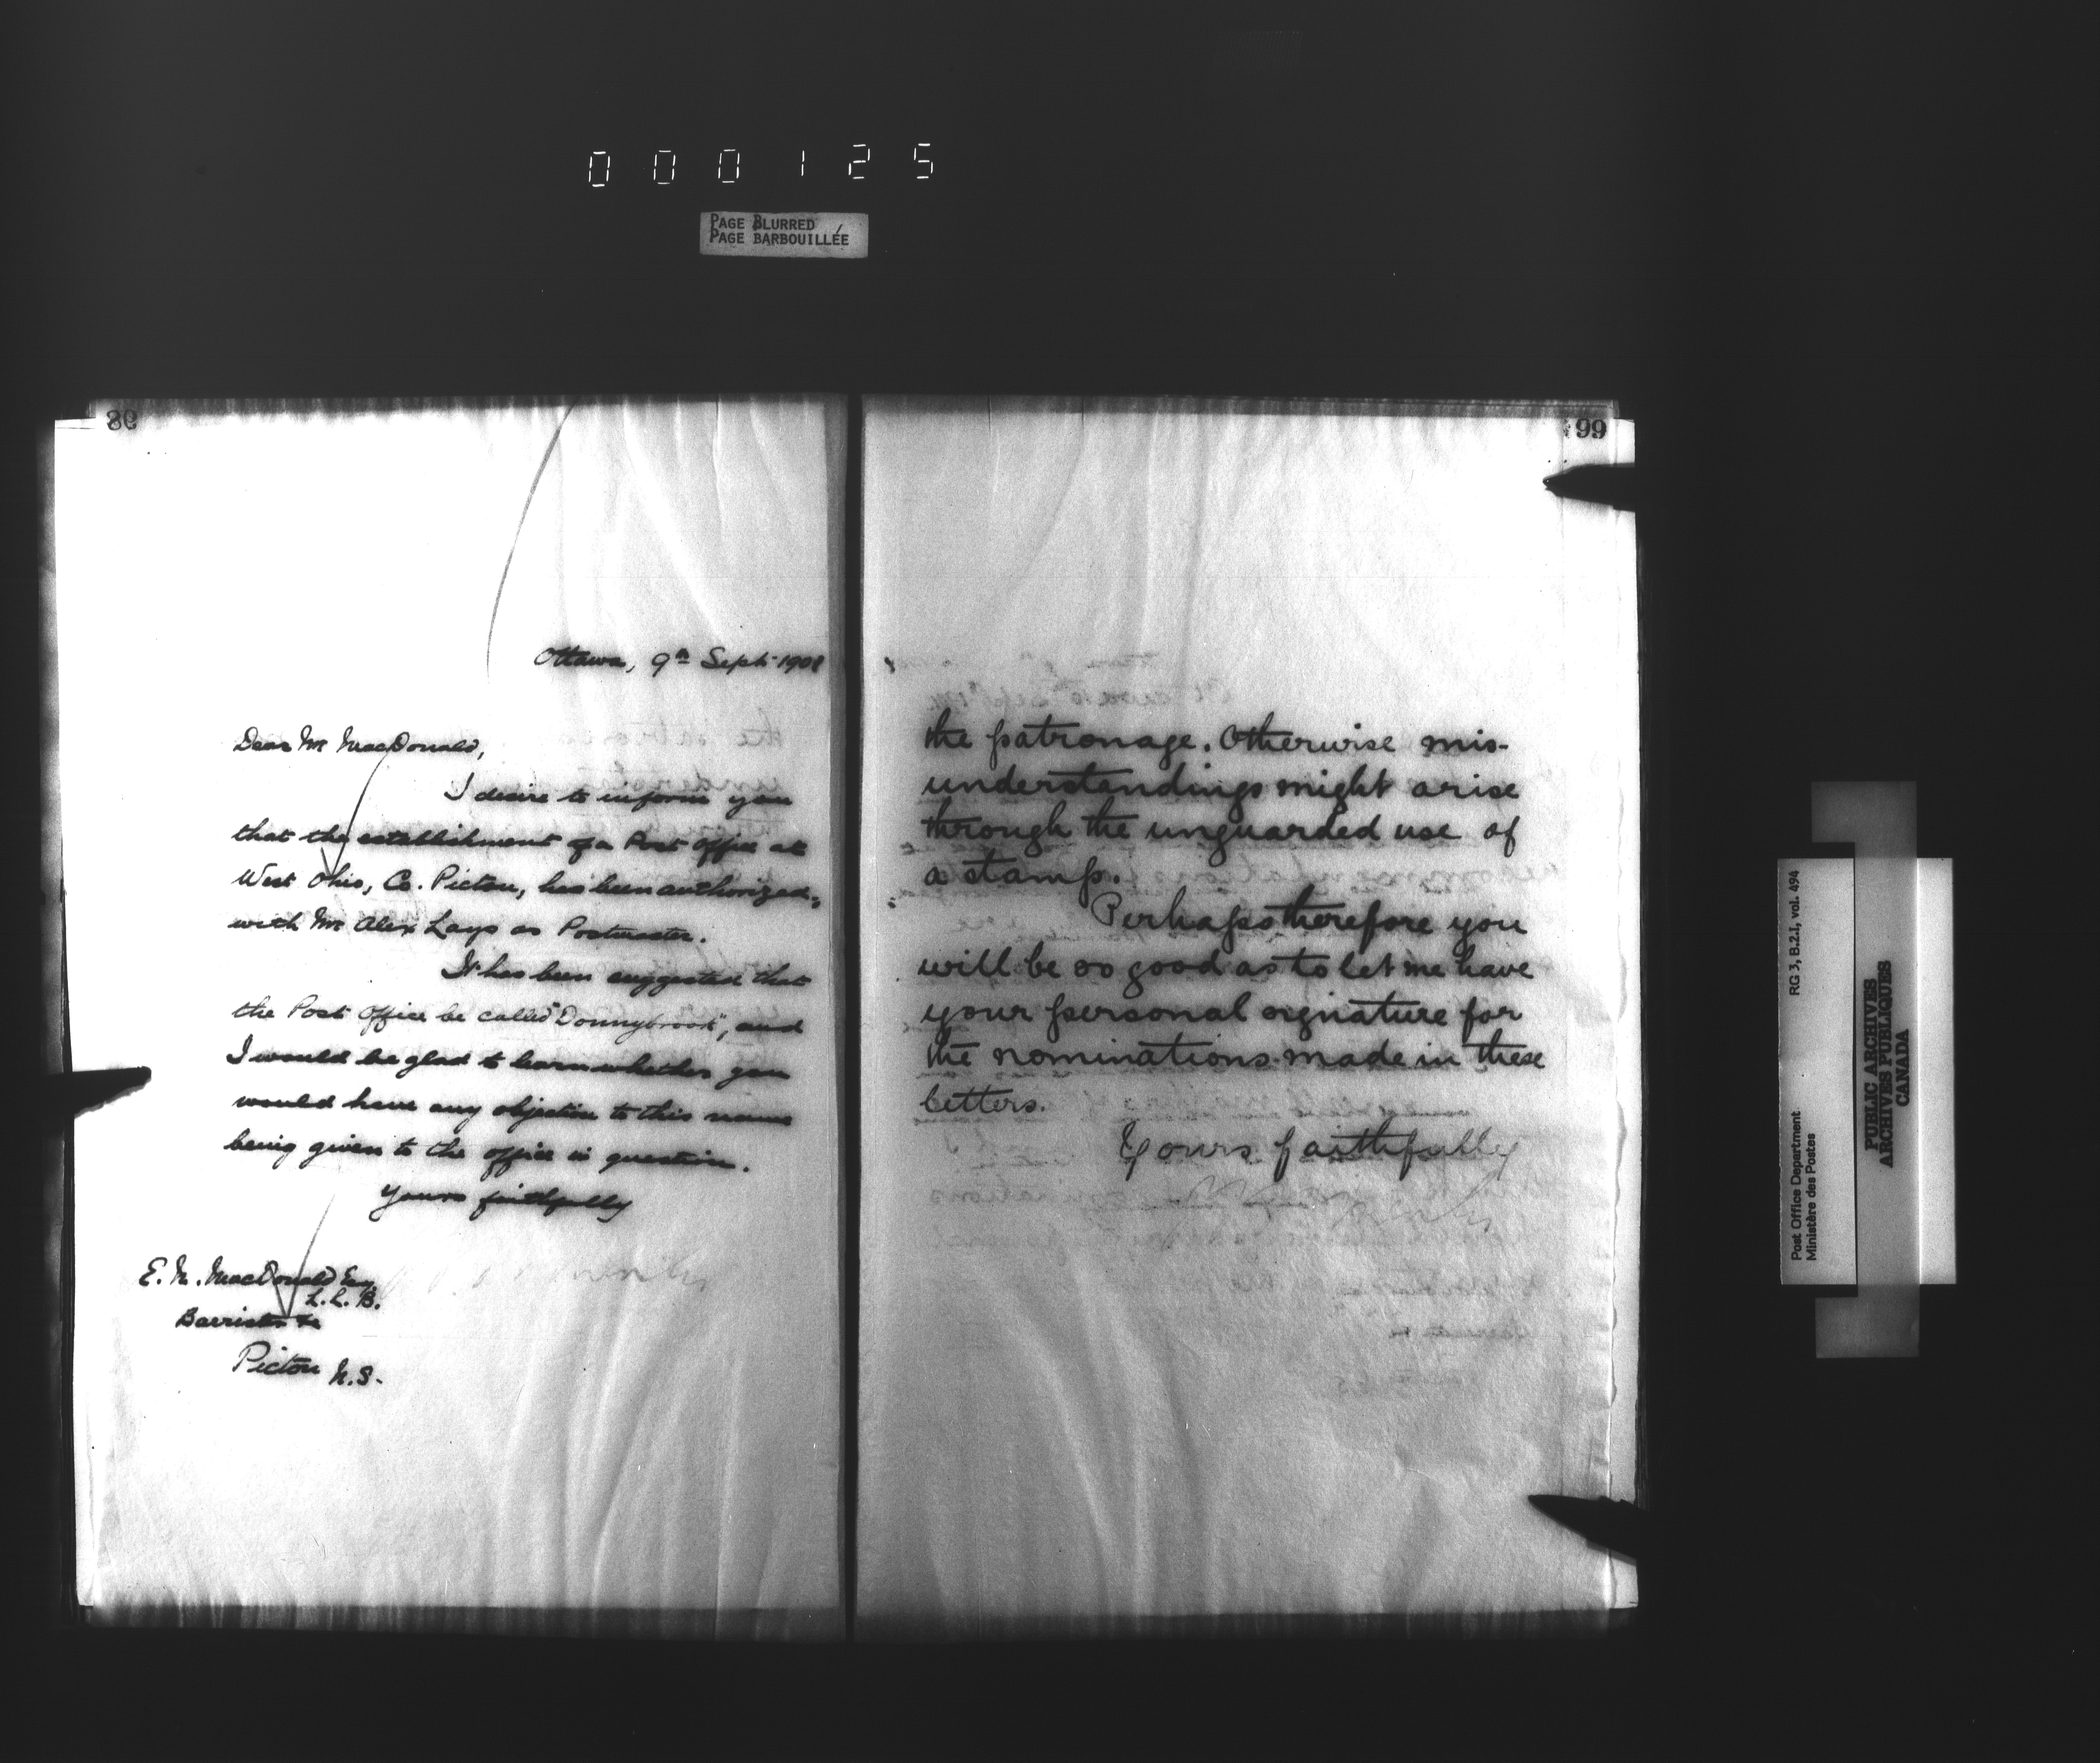 000125
PAGE BLURRED
PAGE BARBOUILLÉE
99
Ottawa, 9th Sept 1901
Dear Mr MacDonald,
I desire to inform you
that the establishment of a Post Office at
West Ohio, Co. Pictou, has been authorized,
with Mr Alex Lays as Postmaster.
It has been suggested that
the Post Office be called "Donnybrook", and
I would be glad to learn whether you
would have any objection to this name
being given to the office in question.
Yours faithfully
E. M. MacDonald Esq
L.L.B.
Barrister &c
Pictou N.S.
the patronage. Otherwise mis-
understandings might arise
through the unguarded use of
a stamp.
Perhaps therefore you
will be so good as to let me have
your personal signature for
the nominations made in these
letters.
Yours faithfully
Post Office Department
Ministère des Postes
RG 3, B.2.I, vol. 494
PUBLIC ARCHIVES
ARCHIVES PUBLIQUES
CANADA